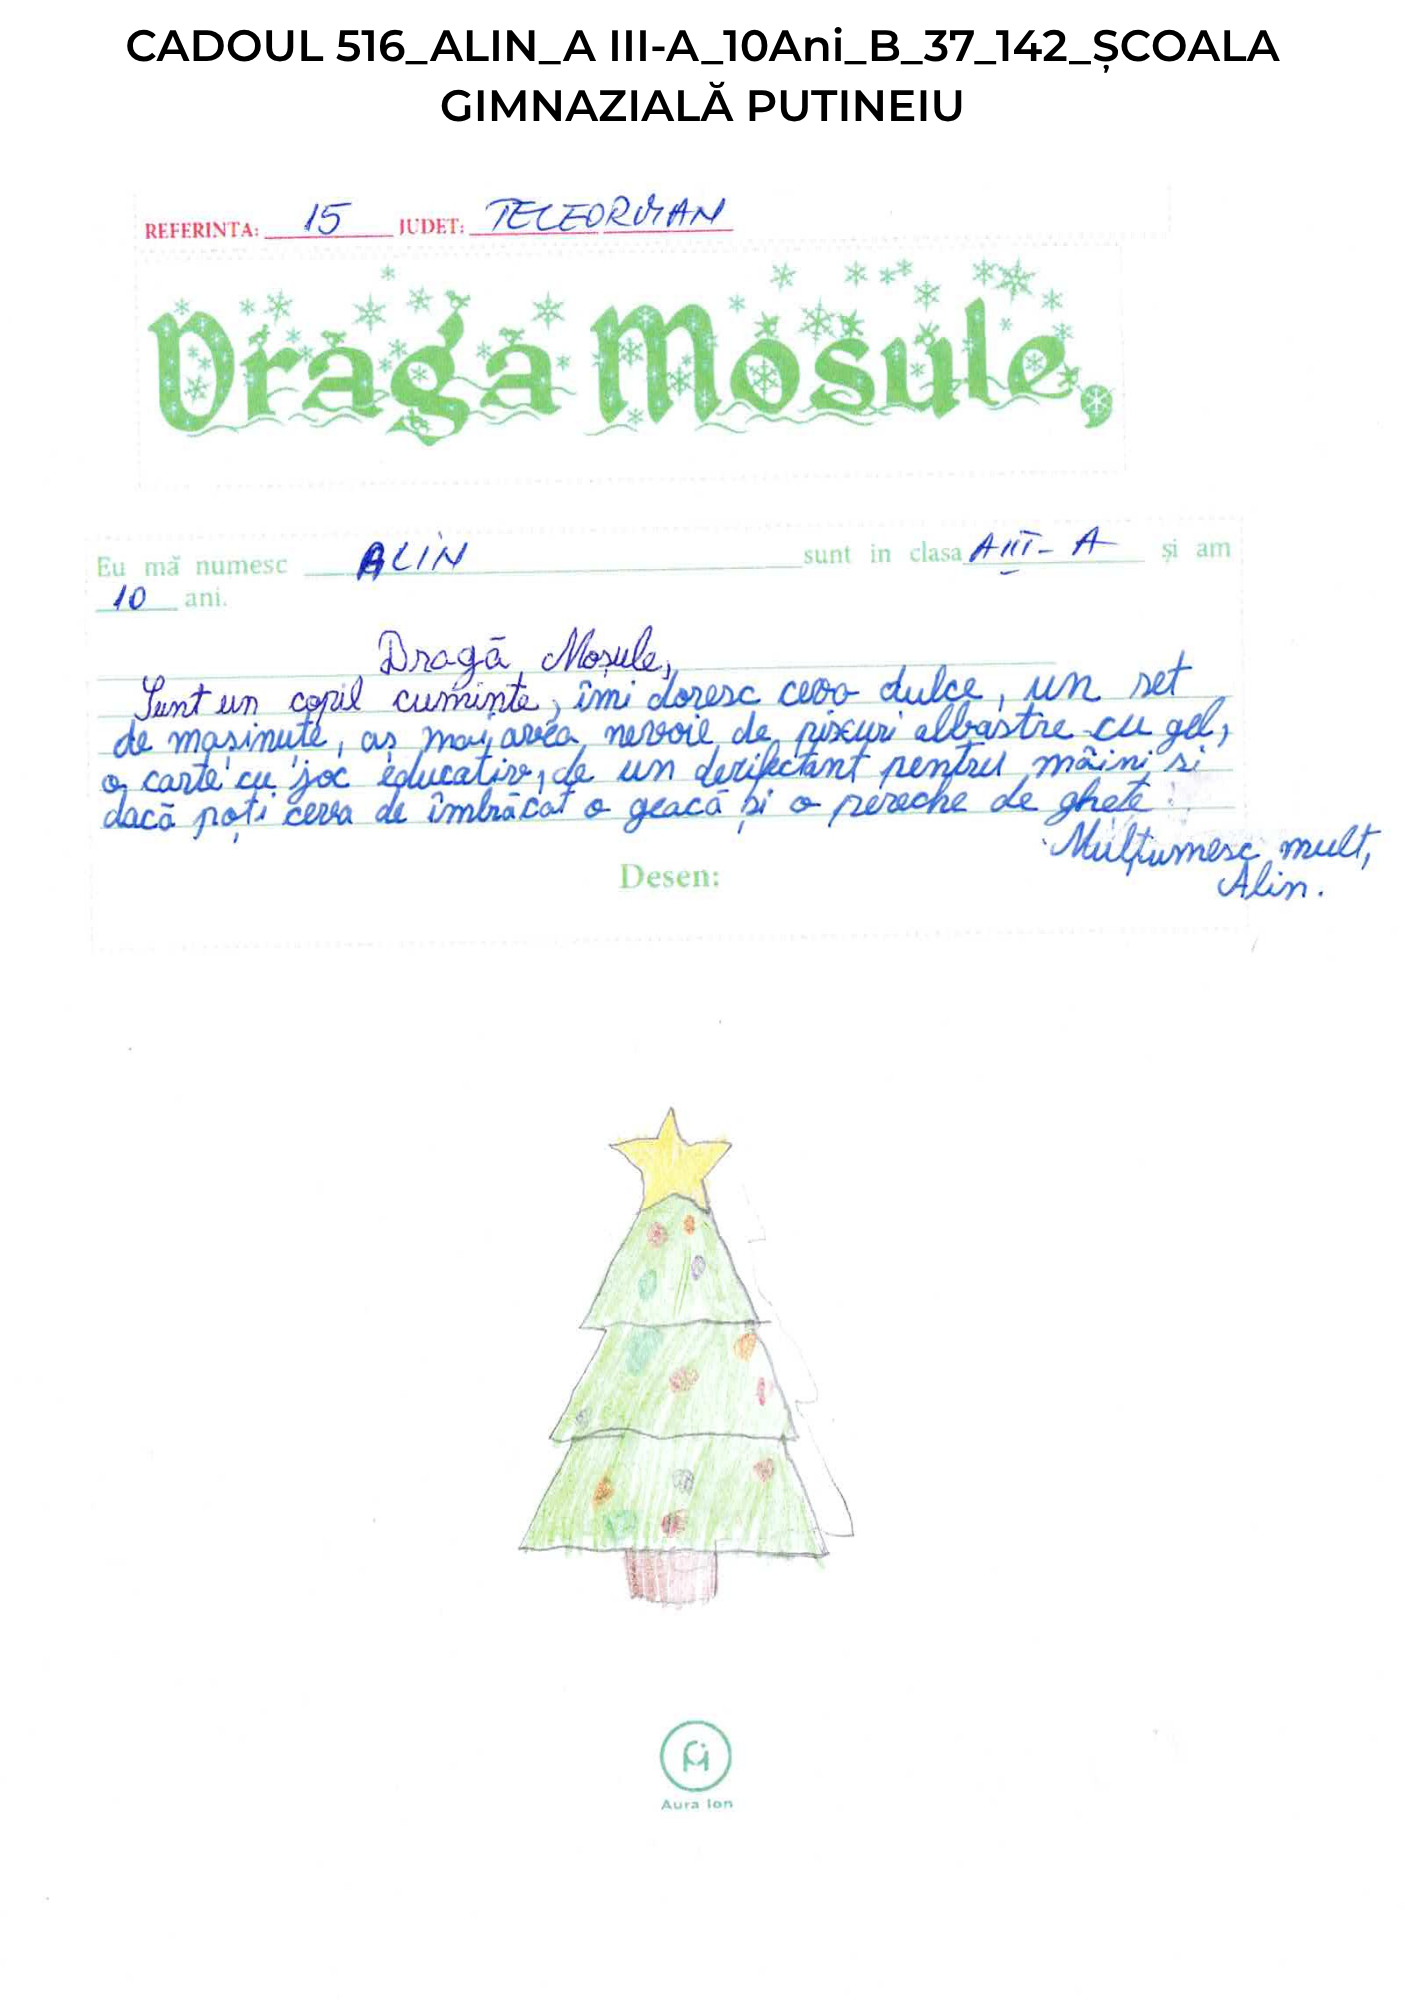 CADOUL 516_ALIN_A III-A_10Ani_B_37_142_ȘCOALA
GIMNAZIALĂ PUTINEIU
REFERINTA: 15 JUDET: TELEORMAN
Draga Mosule,
Eu mă numesc ALIN sunt in clasa A III-A și am
10 ani.
Dragă Moșule,
Sunt un copil cuminte, îmi doresc ceva dulce, un set
de mașinuțe, aș mai avea nevoie de pixuri albastre cu gel,
o carte cu joc educativ, de un dezifectant pentru mâini și
dacă poți ceva de îmbrăcat o geacă și o pereche de ghete
Mulțumesc mult,
Alin.
Desen:
Aura Ion